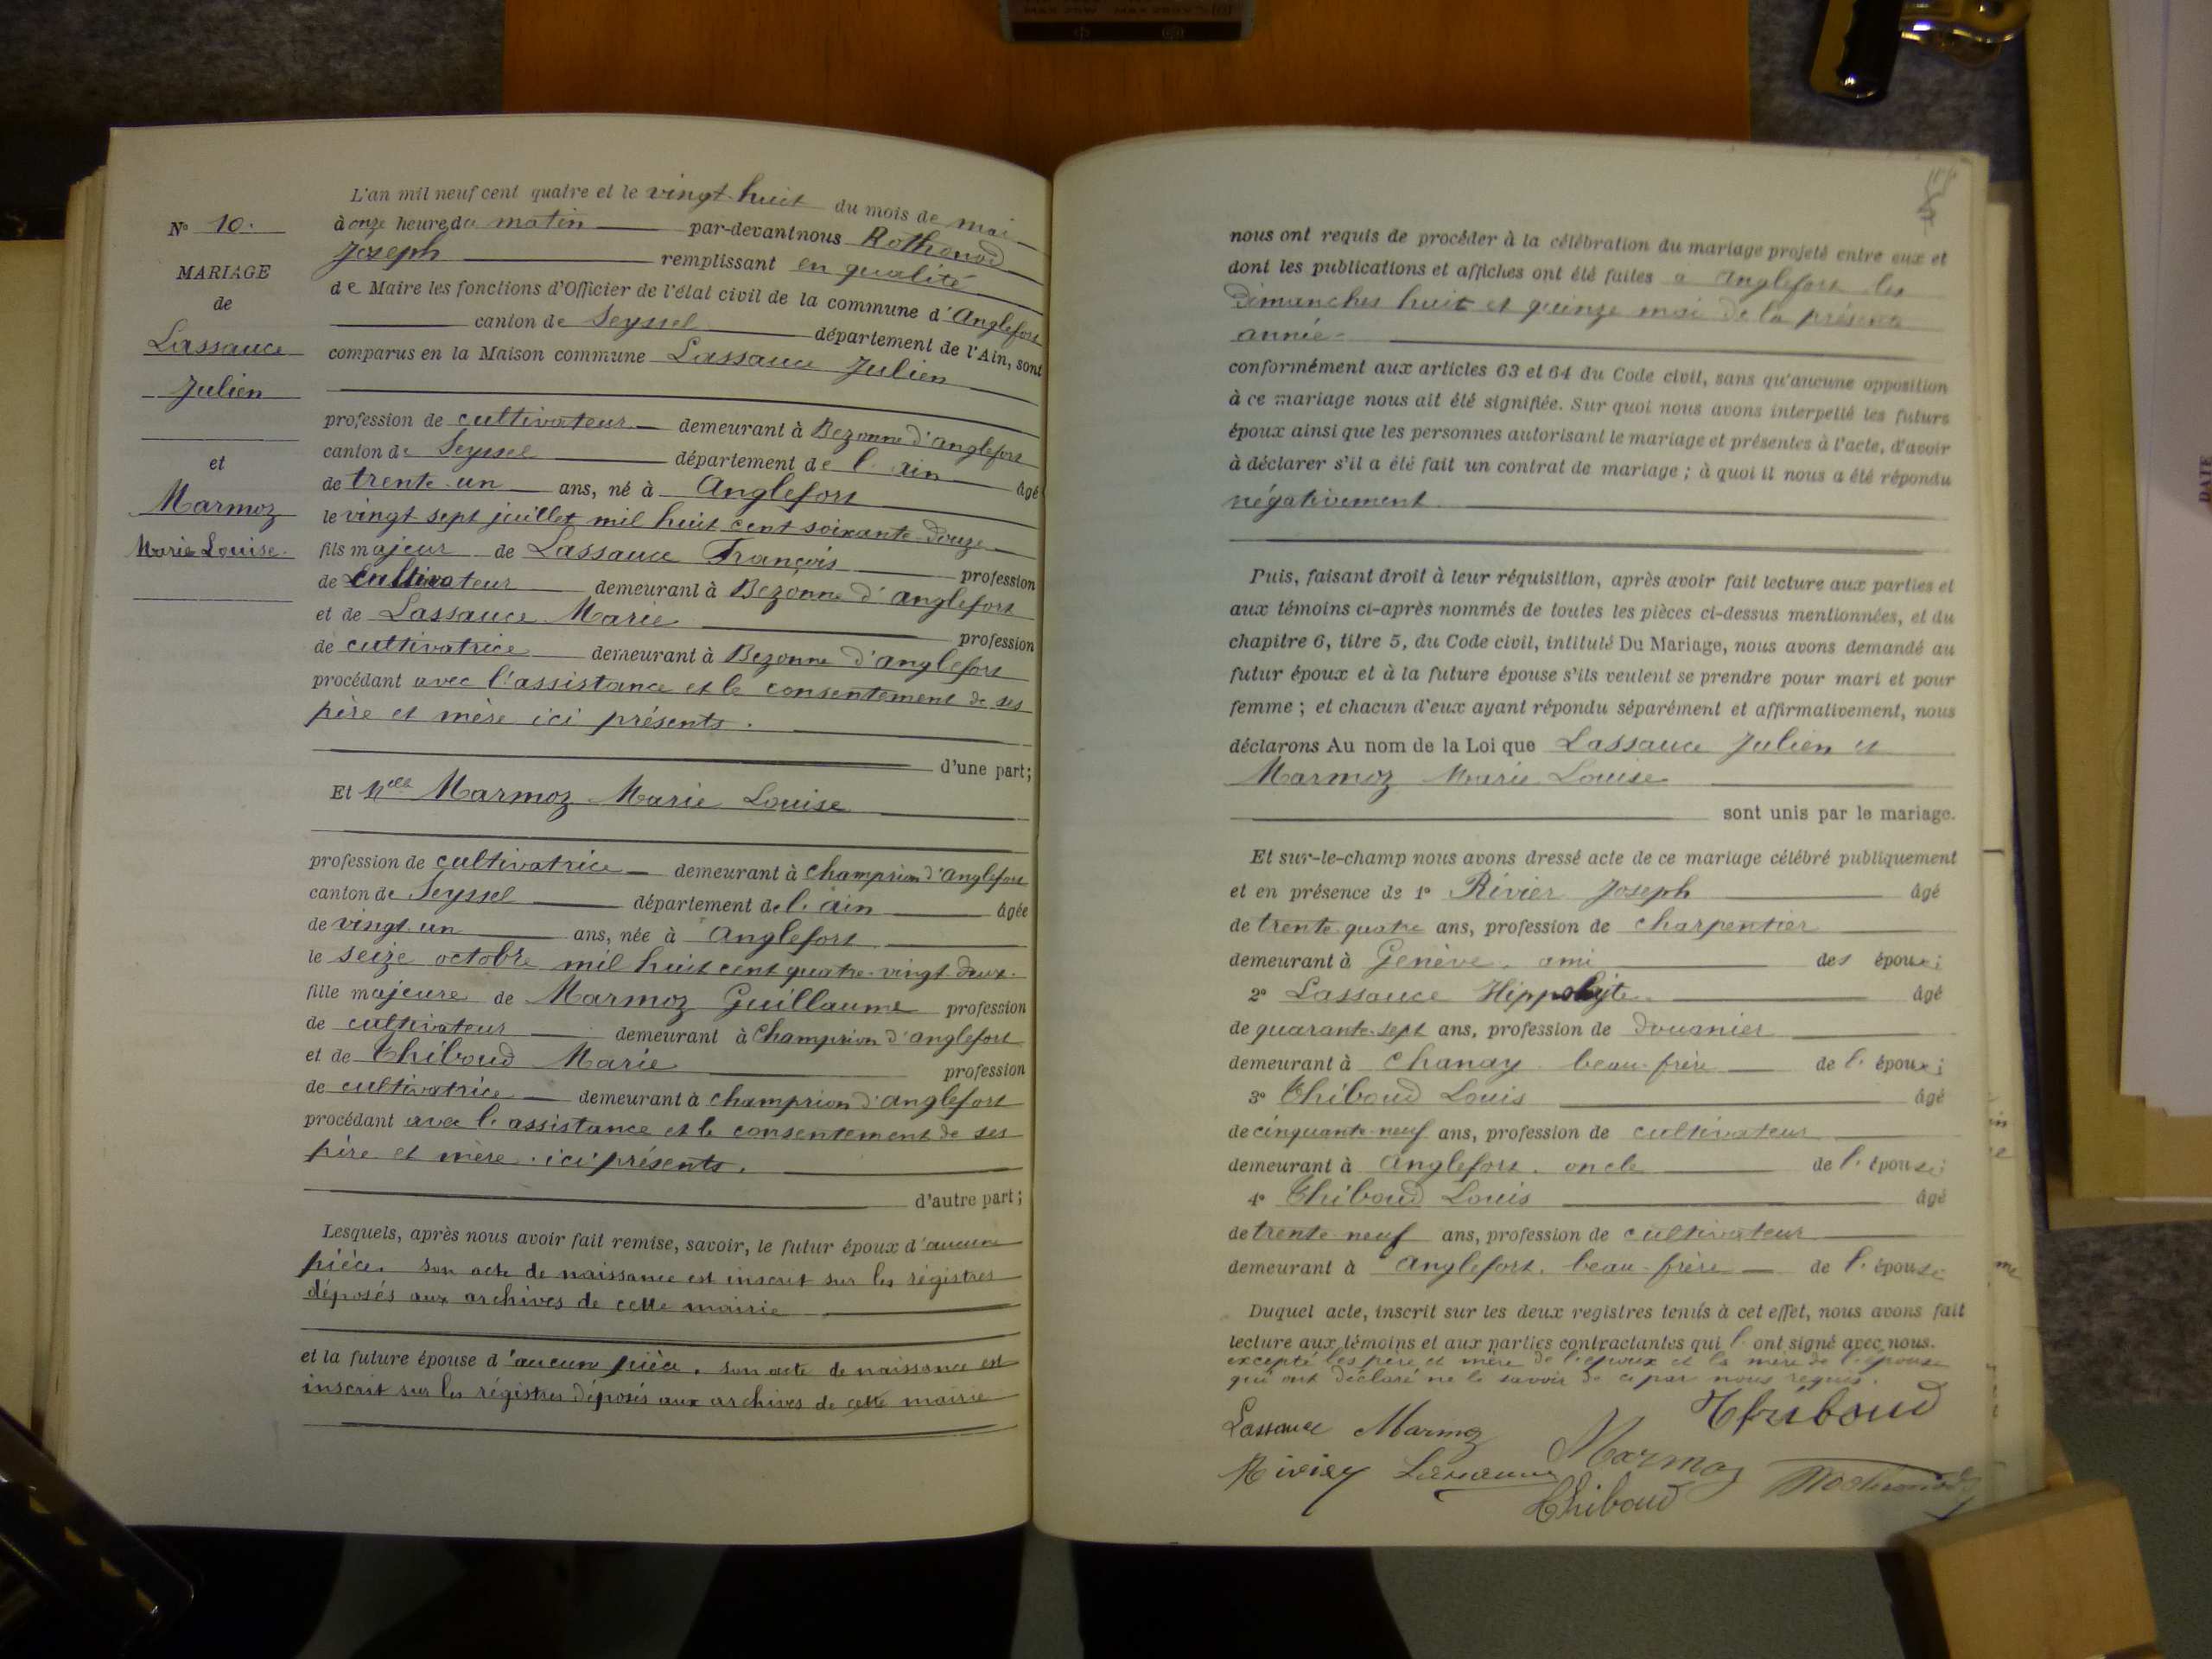 N° 10.
MARIAGE
de
Lassauce
Julien
et
Marmoz
Marie Louise.
L'an mil neuf cent quatre et le vingt-huit du mois de mai
à onze heure du matin par-devant nous Rothonod
Joseph remplissant en qualité
de Maire les fonctions d'Officier de l'état civil de la commune d'Anglefort
canton de Seyssel département de l'Ain, sont
comparus en la Maison commune Lassauce Julien
profession de cultivateur demeurant à Bezonne d'anglefort
canton de Seyssel département de l'ain âgé
de trente-un ans, né à Anglefort
le vingt-sept juillet mil huit cent soixante-douze
fils majeur de Lassauce François profession
de cultivateur demeurant à Bezonne d'anglefort
et de Lassauce Marie profession
de cultivatrice demeurant à Bezonne d'anglefort
procédant avec l'assistance et le consentement de ses
père et mère ici présents.
d'une part;
Et Melle Marmoz Marie Louise
profession de cultivatrice demeurant à Champrion d'anglefort
canton de Seyssel département de l'ain âgée
de vingt-un ans, née à Anglefort
le seize octobre mil huit cent quatre-vingt-deux.
fille majeure de Marmoz Guillaume profession
de cultivateur demeurant à Champrion d'anglefort
et de Thiboud Marie profession
de cultivatrice demeurant à Champrion d'anglefort
procédant avec l'assistance et le consentement de ses
père et mère ici présents.
d'autre part;
Lesquels, après nous avoir fait remise, savoir, le futur époux d'aucune
pièce. son acte de naissance est inscrit sur les régistres
déposés aux archives de cette mairie
et la future épouse d'aucune pièce. son acte de naissance est
inscrit sur les régistres déposés aux archives de cette mairie
nous ont requis de procéder à la célébration du mariage projeté entre eux et
dont les publications et affiches ont été faites à Anglefort les
dimanches huit et quinze mai de la présente
année
conformément aux articles 63 et 64 du Code civil, sans qu'aucune opposition
à ce mariage nous ait été signifiée. Sur quoi nous avons interpellé les futurs
époux ainsi que les personnes autorisant le mariage et présentes à l'acte, d'avoir
à déclarer s'il a été fait un contrat de mariage ; à quoi il nous a été répondu
négativement
Puis, faisant droit à leur réquisition, après avoir fait lecture aux parties et
aux témoins ci-après nommés de toutes les pièces ci-dessus mentionnées, et du
chapitre 6, titre 5, du Code civil, intitulé Du Mariage, nous avons demandé au
futur époux et à la future épouse s'ils veulent se prendre pour mari et pour
femme ; et chacun d'eux ayant répondu séparément et affirmativement, nous
déclarons Au nom de la Loi que Lassauce Julien et
Marmoz Marie Louise
sont unis par le mariage.
Et sur-le-champ nous avons dressé acte de ce mariage célébré publiquement
et en présence de 1° Rivier Joseph âgé
de trente-quatre ans, profession de charpentier
demeurant à Genève, ami des époux;
2° Lassauce Hippolyte âgé
de quarante-sept ans, profession de douanier
demeurant à Chanay beau-frère de l'époux;
3° Thiboud Louis âgé
de cinquante-neuf ans, profession de cultivateur
demeurant à Anglefort. oncle de l'épouse;
4° Thiboud Louis âgé
de trente-neuf ans, profession de cultivateur
demeurant à Anglefort. beau-frère de l'épouse
Duquel acte, inscrit sur les deux registres tenus à cet effet, nous avons fait
lecture aux témoins et aux parties contractantes qui l'ont signé avec nous.
excepté les père et mère de l'époux et la mère de l'épouse
qui ont déclaré ne le savoir de ce par nous requis.
Thiboud
Lassauce Marmoz Marmoz
Rivier Lassauce Rothonod
Thiboud
DATE